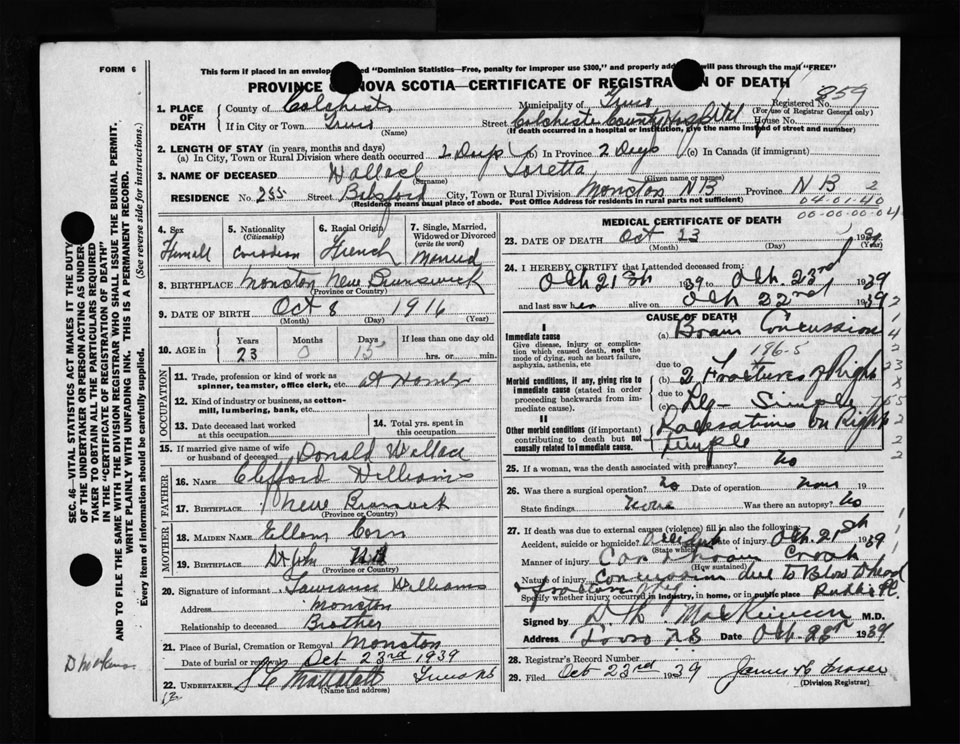 FORM 6
This form if placed in an envelop ed "Dominion Statistics—Free, penalty for improper use $300," and properly add will pass through the mail "FREE"
PROVINCE NOVA SCOTIA—CERTIFICATE OF REGISTRATION OF DEATH
859
1. PLACE OF DEATH County of Municipality of Truro Registered No.
(For use of Registrar General only)
If in City or Town Truro Street Colchester County Hospital House No.
(Name) (If death occurred in a hospital or institution, give the name instead of street and number)
2. LENGTH OF STAY (in years, months and days)
(a) In City, Town or Rural Division where death occurred 2 Days (b) In Province 2 Days (c) In Canada (if immigrant)
3. NAME OF DECEASED Wallace Loretta
(Surname) (Given name or names)
RESIDENCE No. 255 Street Botsford City, Town or Rural Division Moncton NB Province NB 2
(Residence means usual place of abode. Post Office Address for residents in rural parts not sufficient)
04-01-40
00-00-00-04
4. Sex
5. Nationality (Citizenship)
6. Racial Origin French
7. Single, Married, Widowed or Divorced (write the word) Married
8. BIRTHPLACE Moncton New Brunswick
(Province or Country)
9. DATE OF BIRTH Oct 8 1916
(Month) (Day) (Year)
10. AGE in Years Months Days If less than one day old
23 0 15 hrs. or min.
OCCUPATION
11. Trade, profession or kind of work as spinner, teamster, office clerk, etc. at Home
12. Kind of industry or business, as cotton-mill, lumbering, bank, etc.
13. Date deceased last worked at this occupation
14. Total yrs. spent in this occupation
15. If married give name of wife or husband of deceased Donald Wallace
FATHER
16. NAME Clifford Williams
17. BIRTHPLACE New Brunswick
(Province or Country)
MOTHER
18. MAIDEN NAME Ellen
19. BIRTHPLACE St John NB
(Province or Country)
20. Signature of informant Williams
Address Moncton
Relationship to deceased Brother
21. Place of Burial, Cremation or Removal Moncton
Date of burial or removal Oct 23rd 1939
22. UNDERTAKER Truro NS
(Name and address)
MEDICAL CERTIFICATE OF DEATH
23. DATE OF DEATH Oct 23 1939
(Month) (Day) (Year)
24. I HEREBY CERTIFY that I attended deceased from:
Oct 21st 1939 to Oct. 23rd 1939
and last saw her alive on Oct 22nd 1939
CAUSE OF DEATH
I
Immediate cause (a) Brain Concussion
Give disease, injury or complication which caused death, not the mode of dying, such as heart failure, asphyxia, asthenia, etc
196-5
due to
Morbid conditions, if any, giving rise to immediate cause (stated in order proceeding backwards from immediate cause).
(b) 2 Fractures of Right
due to
(c) Leg - Simple
II
Other morbid conditions (if important) contributing to death but not causally related to immediate cause.
Lacerations on Right
Temple
25. If a woman, was the death associated with pregnancy? No
26. Was there a surgical operation? No Date of operation 19
State findings None Was there an autopsy? No
27. If death was due to external causes (violence) fill in also the following:
Accident, suicide or homicide? Accident Date of injury Oct. 21st 1939
(State which)
Manner of injury Car
(How sustained)
Nature of injury Concussion due to Blow to head
Specify whether injury occurred in industry, in home, or in public place Public Pl.
Signed by M.D.
Address Truro N.S Date Oct. 1939
28. Registrar's Record Number
29. Filed Oct 23rd 1939 James Fraser
(Division Registrar)
SEC. 46—VITAL STATISTICS ACT MAKES IT THE DUTY
OF THE UNDERTAKER OR PERSON ACTING AS UNDERTAKER TO OBTAIN ALL THE PARTICULARS REQUIRED
IN THE "CERTIFICATE OF REGISTRATION OF DEATH"
AND TO FILE THE SAME WITH THE DIVISION REGISTRAR WHO SHALL ISSUE THE BURIAL PERMIT.
WRITE PLAINLY WITH UNFADING INK. THIS IS A PERMANENT RECORD.
Every item of information should be carefully supplied. (See reverse side for instructions.)